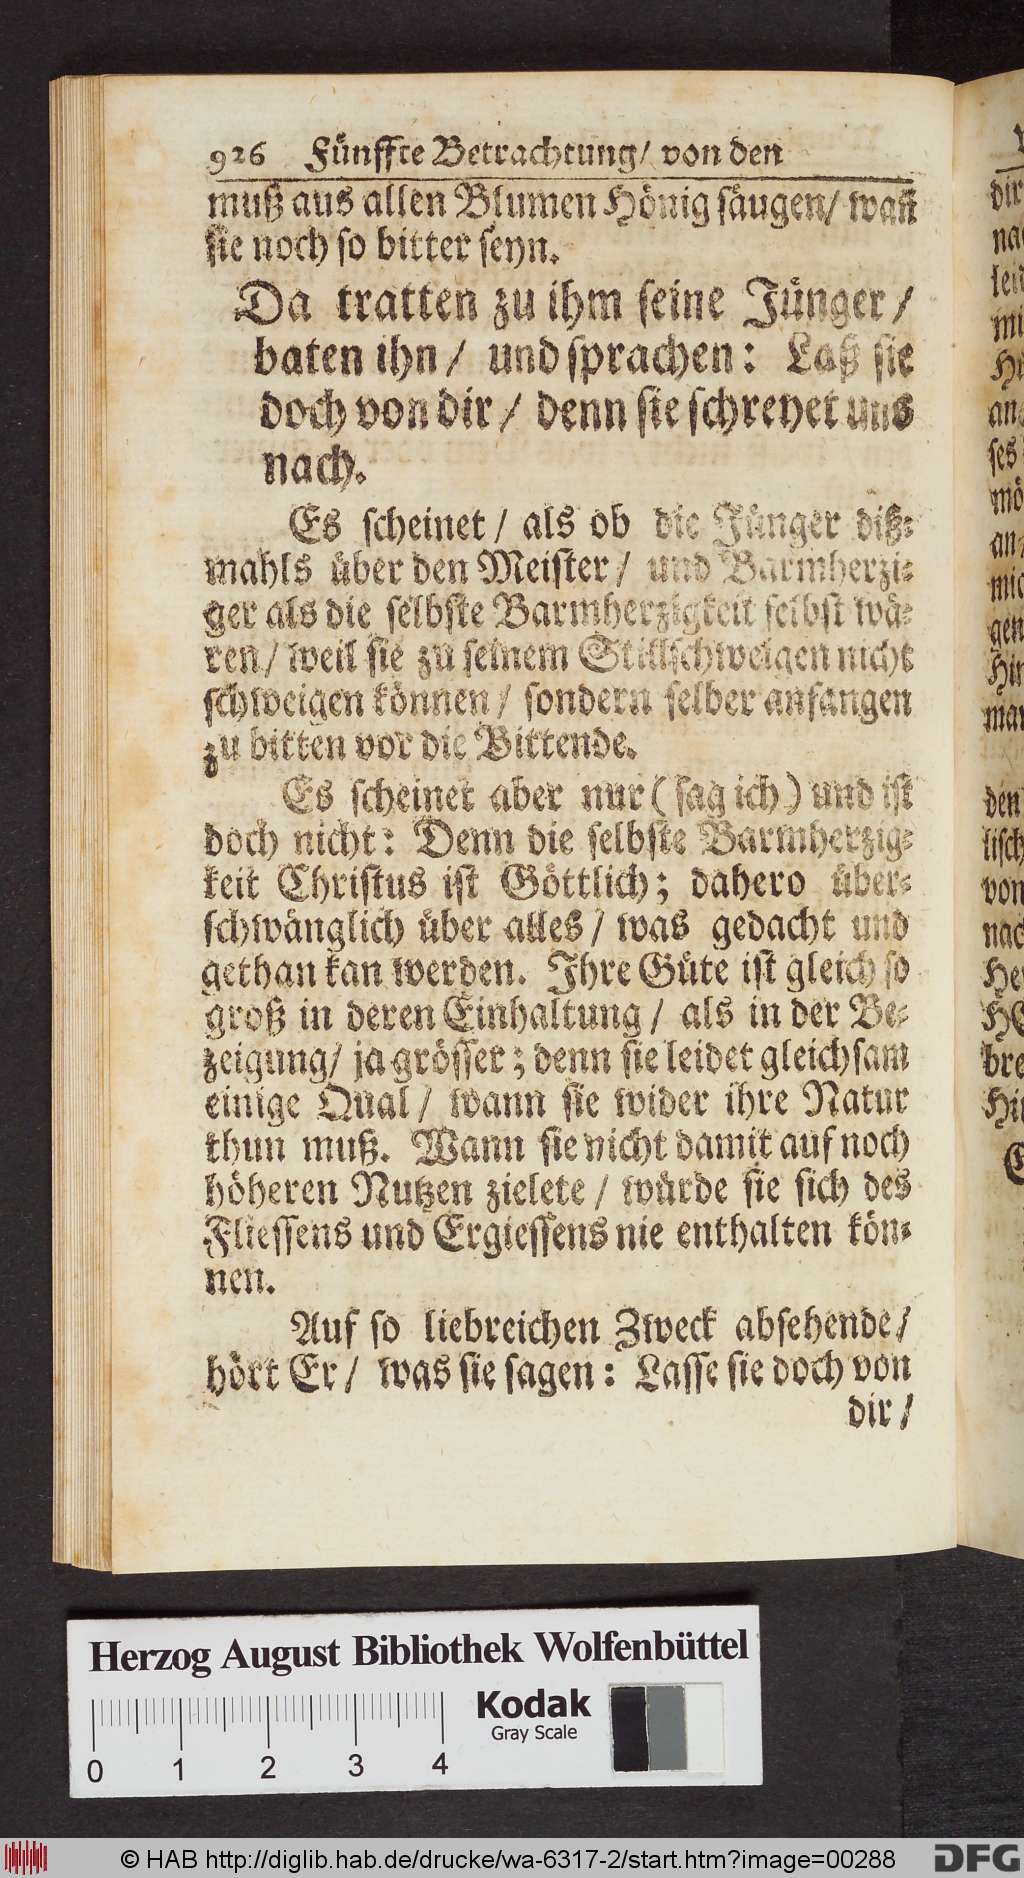 926 Fünffte Betrachtung/ von den
muß aus allen Blumen Hönig säugen/ wañ
sie noch so bitter seyn.
Da tratten zu ihm seine Jünger /
baten ihn / und sprachen: Laß sie
doch von dir / denn sie schreyet uns
nach.
Es scheinet / als ob die Jünger diß-
mahls über den Meister / und Barmherzi-
ger als die selbste Barmherzigkeit selbst wä-
ren / weil sie zu seinem Stillschweigen nicht
schweigen können / sondern selber anfangen
zu bitten vor die Bittende.
Es scheinet aber nur ( sag ich ) und ist
doch nicht: Denn die selbste Barmherzig-
keit Christus ist Göttlich; dahero über-
schwänglich über alles / was gedacht und
gethan kan werden. Ihre Güte ist gleich so
groß in deren Einhaltung / als in der Be-
zeigung/ ja grösser; denn sie leidet gleichsam
einige Qual / wann sie wider ihre Natur
thun muß. Wann sie nicht damit auf noch
höheren Nutzen zielete / würde sie sich des
Fliessens und Ergiessens nie enthalten kön-
nen.
Auf so liebreichen Zweck absehende /
hört Er / was sie sagen: Lasse sie doch von
dir /
Herzog August Bibliothek Wolfenbüttel
Kodak
Gray Scale
0 1 2 3 4
© HAB http://diglib.hab.de/drucke/wa-6317-2/start.htm?image=00288
DFG